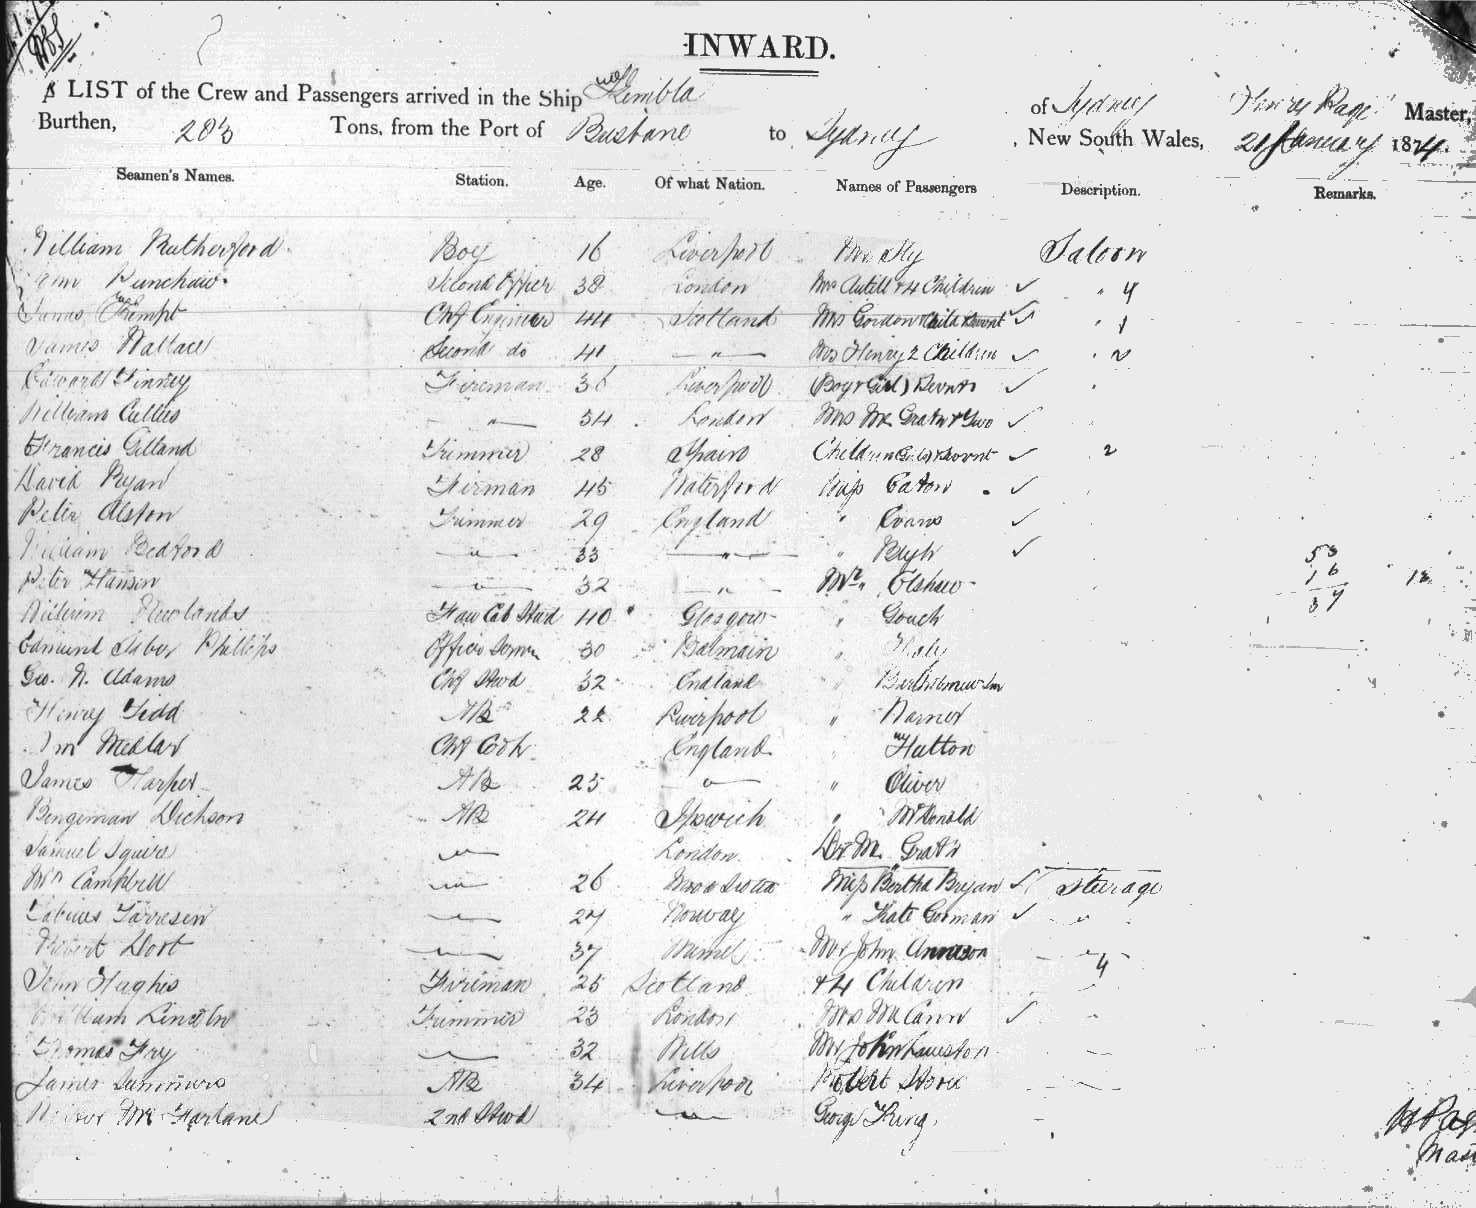 INWARD.
A LIST of the Crew and Passengers arrived in the Ship Kembla of Sydney Henry Page Master,
Burthen, 203 Tons, from the Port of Brisbane to Sydney, New South Wales, 21 January 1874.
Seamen's Names. Station. Age. Of what Nation. Names of Passengers Description. Remarks.
William Rutherford Boy 16 Liverpool Saloon
Second Officer 38 London Mrs Autill & 4 Children ✓ " 4
James Kempt Chf Engineer 44 Scotland Mrs Gordon Child & Servnt ✓ " 1
James Wallace Second do 41 " Mrs Henry 2 Children ✓ " 2
Edward Finney Fireman 36 Liverpool (Boy & Girl) Servnts ✓
William " 54 London Mrs Mc Grath & Two ✓
Francis Gilland Trimmer 28 Spain Children & Servnt ✓ 2
David Ryan Firman 45 Waterford Miss Eaton ✓
Peter Alston Trimmer 29 England " Evans ✓
William Bedford " 33 " " Blyth ✓
Peter Hansen " 32 " Mr
William Newlands Faw Cab Stwd 40 Glasgow " Gouch
Edmund Phillips Officers Servn 30 Balmain "
Geo. N. Adams Chf Stwd 32 England "
Henry Tidd AB 22 Liverpool " Warner
Wm Medlar Chf Cook England " Hutton
James Harper AB 25 " " Oliver
Bengeman Dickson AB 24 Ipswich " McDonald
Samuel Squire " London Dr Mc Grath
Wm Campbell " 26 Nova Scotia Miss Bertha Bryan ✓ Steerage
Torresen " 27 Norway " Kate Gorman ✓ "
Robert Dort " 37 Mr John
John Hughes Fireman 25 Scotland & 4 Children 4
William Lincoln Trimmer 23 London Mrs McCann ✓ "
Thomas Fry " 32 Wells Mr John
James Summers AB 34 Liverpool Robert
Mc Farlane 2nd Stwd " George King
53
16
37
H Page